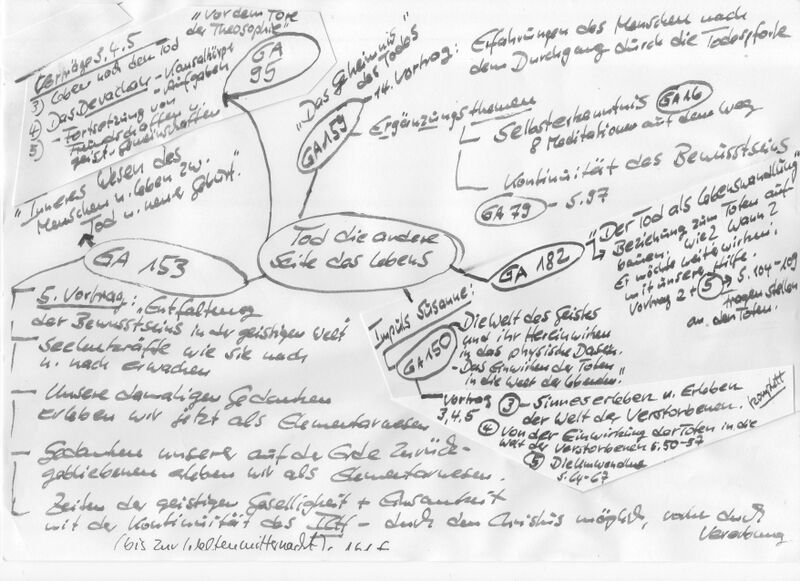 "Vor dem Tore
der Theosophie"
GA
95
Vorträge 3, 4, 5
3) Leben nach dem Tod
4) Das Devachan - Kausalkörper
- Aufgaben
5) - Fortsetzung von
Freundschaften u.
geist. Gemeinschaften
"Das Geheimnis
des Todes"
GA 159
14. Vortrag: Erfahrungen des Menschen nach
dem Durchgang durch die Todespforte
- Ergänzungsthemen
Selbsterkenntnis GA 16
8 Meditationen auf dem Weg
Kontinuität des Bewusstseins
GA 79 - S. 97
"Inneres Wesen des
Menschen u. Leben zw.
Tod u. neuer Geburt."
GA 153
Tod die andere
Seite des Lebens
GA 182
"Der Tod als Lebenswandlung"
Beziehung zum Toten auf-
bauen. Wie? Wann?
Er möchte weiterwirken.
mit unserer Hilfe.
Vortrag 2 + 5 → S. 104-109
Fragen stellen
an den Toten.
5. Vortrag: "Entfaltung
der Bewusstseins in der geistigen Welt"
Seelenkräfte wie sie nach
u. nach erwachen
Unsere damaligen Gedanken
erleben wir jetzt als Elementarwesen
Gedanken unserer auf der Erde Zurück-
gebliebenen erleben wir als Elementarwesen.
Zeiten der geistigen Geselligkeit + Einsamkeit
mit der Kontinuität des ICH - durch den Christus möglich, vorher durch
Vererbung
(bis zur Weltenmitternacht).
Impuls Susanne:
GA 150
Die Welt des Geistes
und ihr Hereinwirken
in das physische Dasein.
- Das Einwirken der Toten
in die Welt der Lebenden."
Vortrag
3, 4, 5
3 - Sinneserleben u. Erleben
der Welt der Verstorbenen.
komplett
4 Von der Einwirkung der Toten in die
Welt der Verstorbenen S. 50-57
5 Die Umwendung
S. 64-67